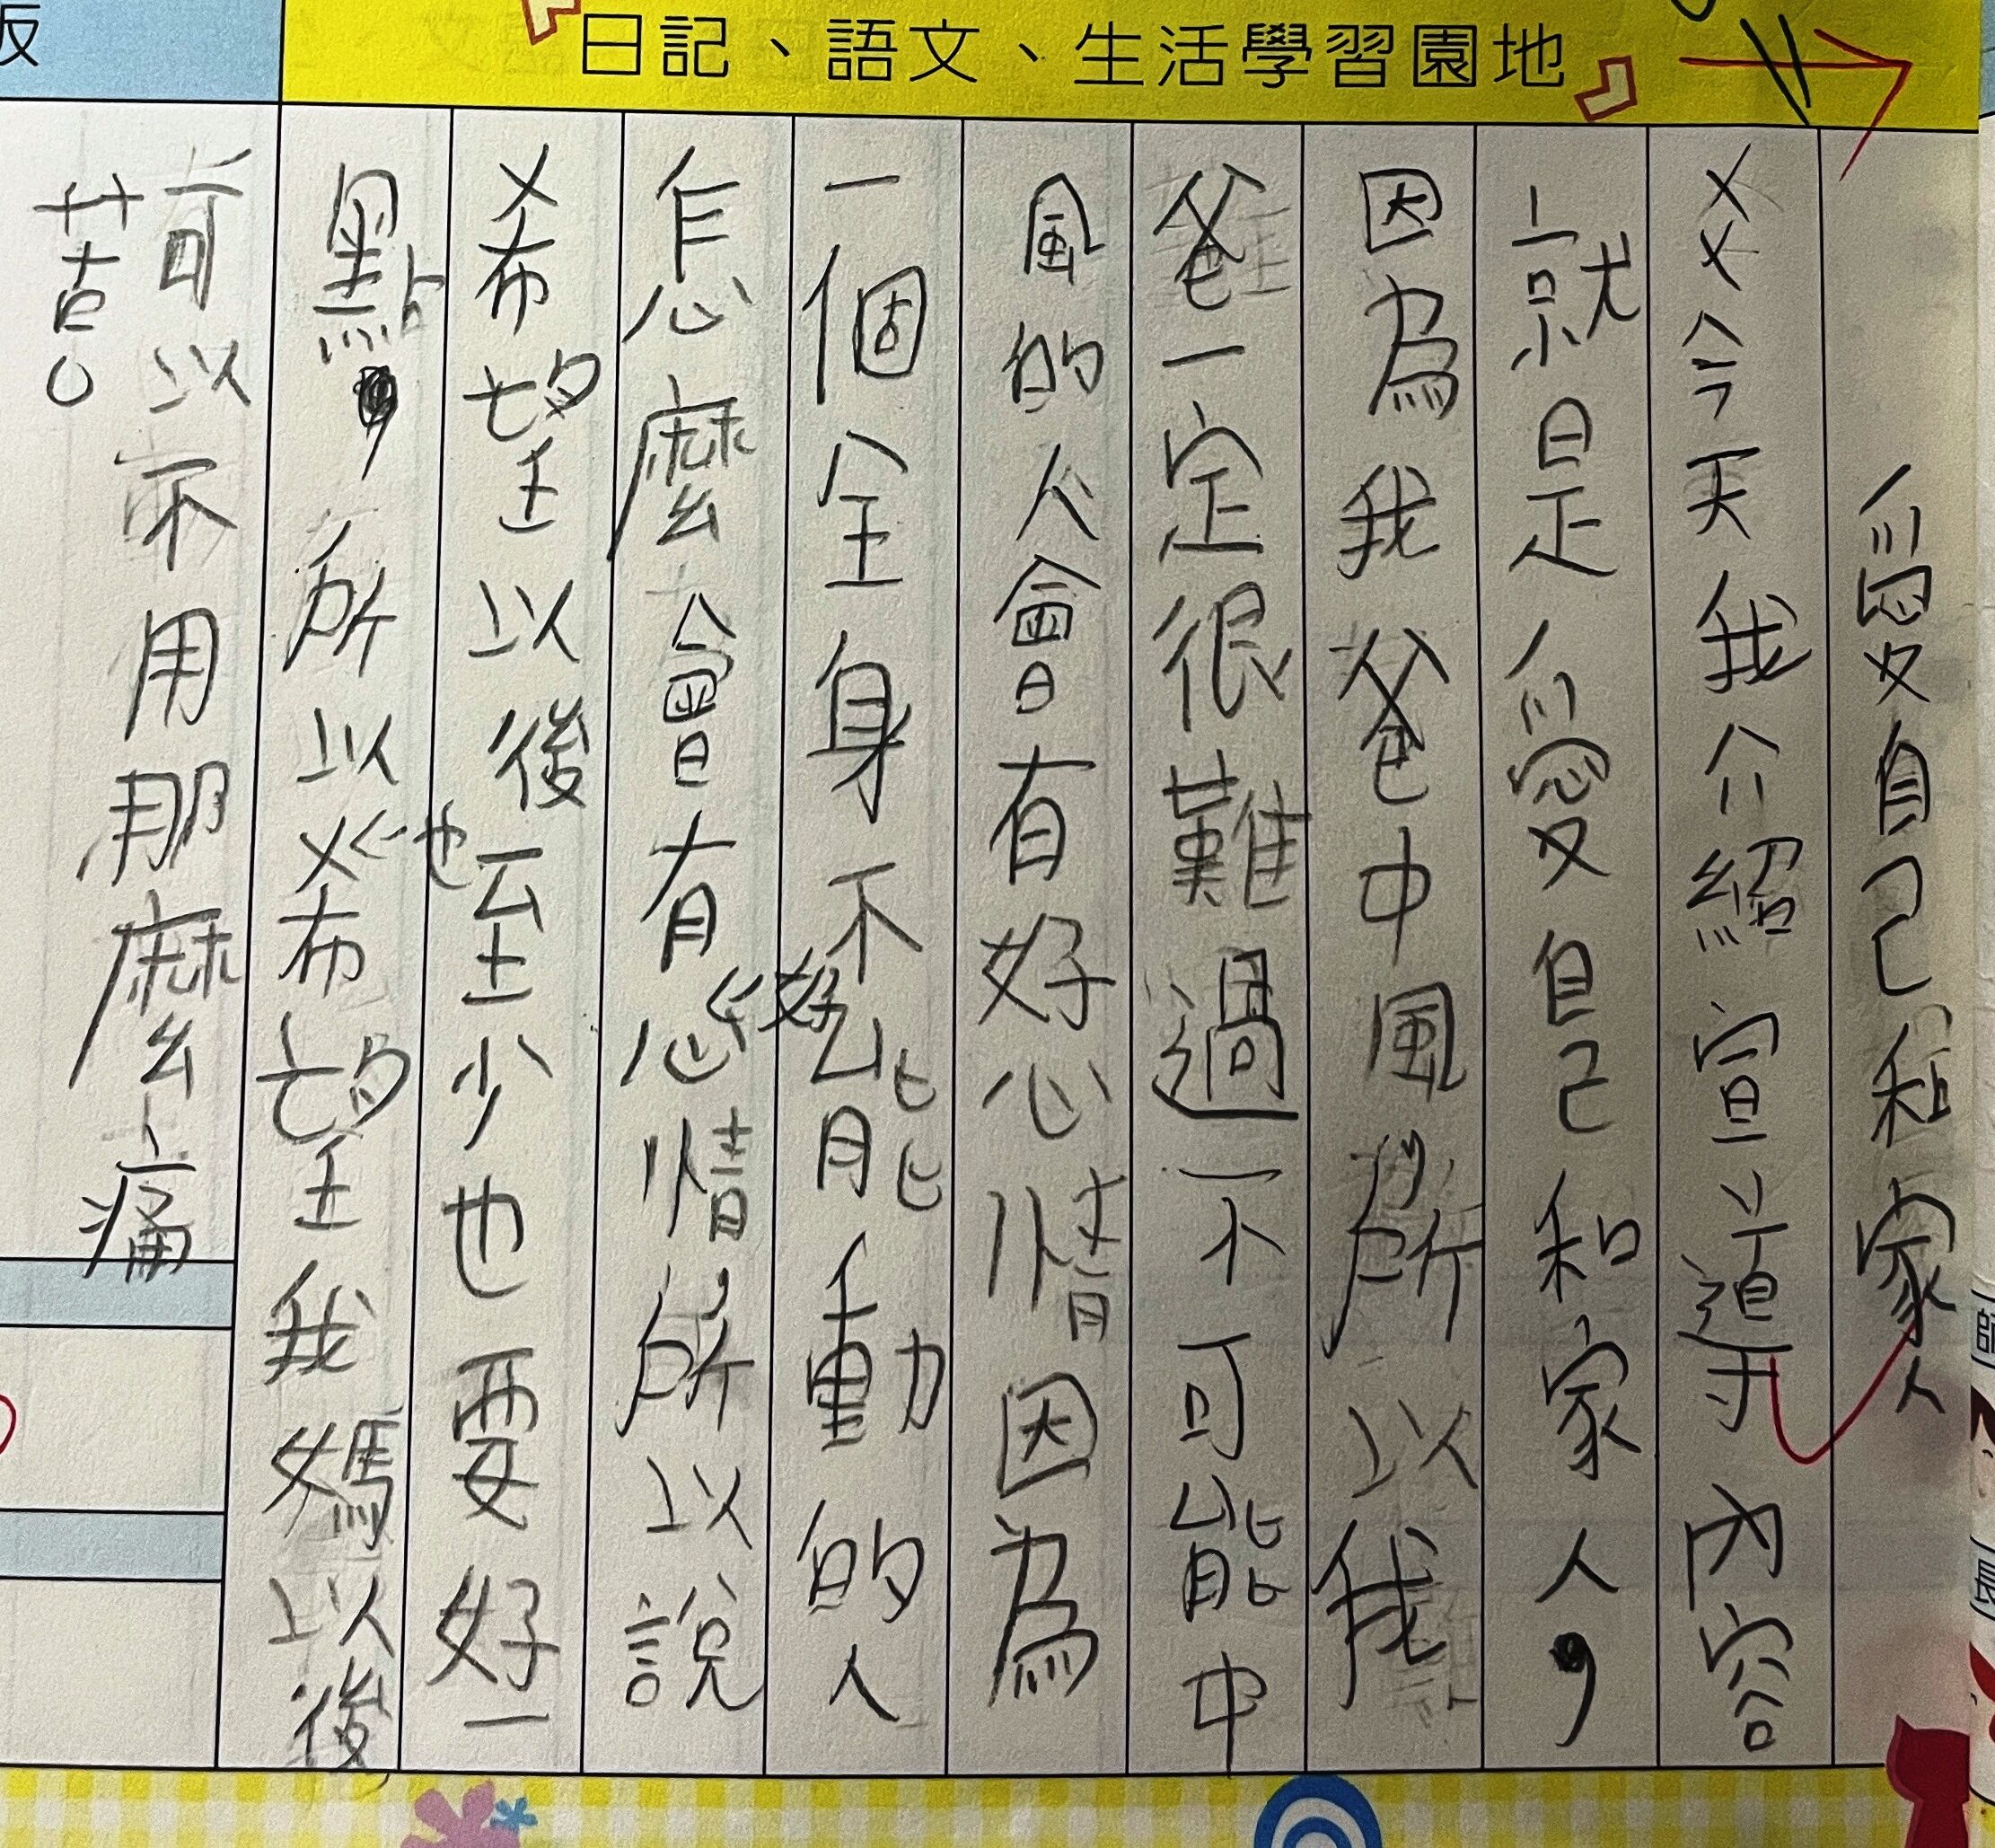 日記、語文、生活學習園地
愛自己和家人
ㄨㄨ今天我介紹宣導內容
就是愛自己和家人，
因為我爸中風所以我
爸一定很難過一不可能中
風的人會有好心情因為
一個全身不能動的人
好
怎麼會有心情所以說
ㄨ希望以後至少也要好一
也
點，所以ㄨ希望我媽以後
可以不用那麼痛
苦。